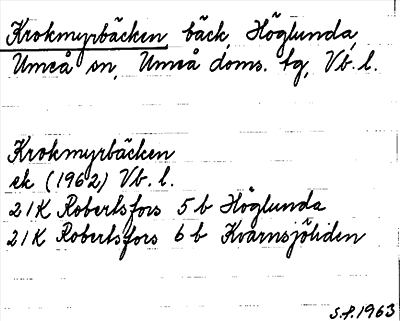 Krokmyrbäcken, bäck, Höglunda,
Umeå sn, Umeå doms. tg, Vb. l.
Krokmyrbäcken
ek (1962) Vb. l.
21K Robertsfors 5b Höglunda
21K Robertsfors 6b Kvarnsjöliden
S.f. 1963